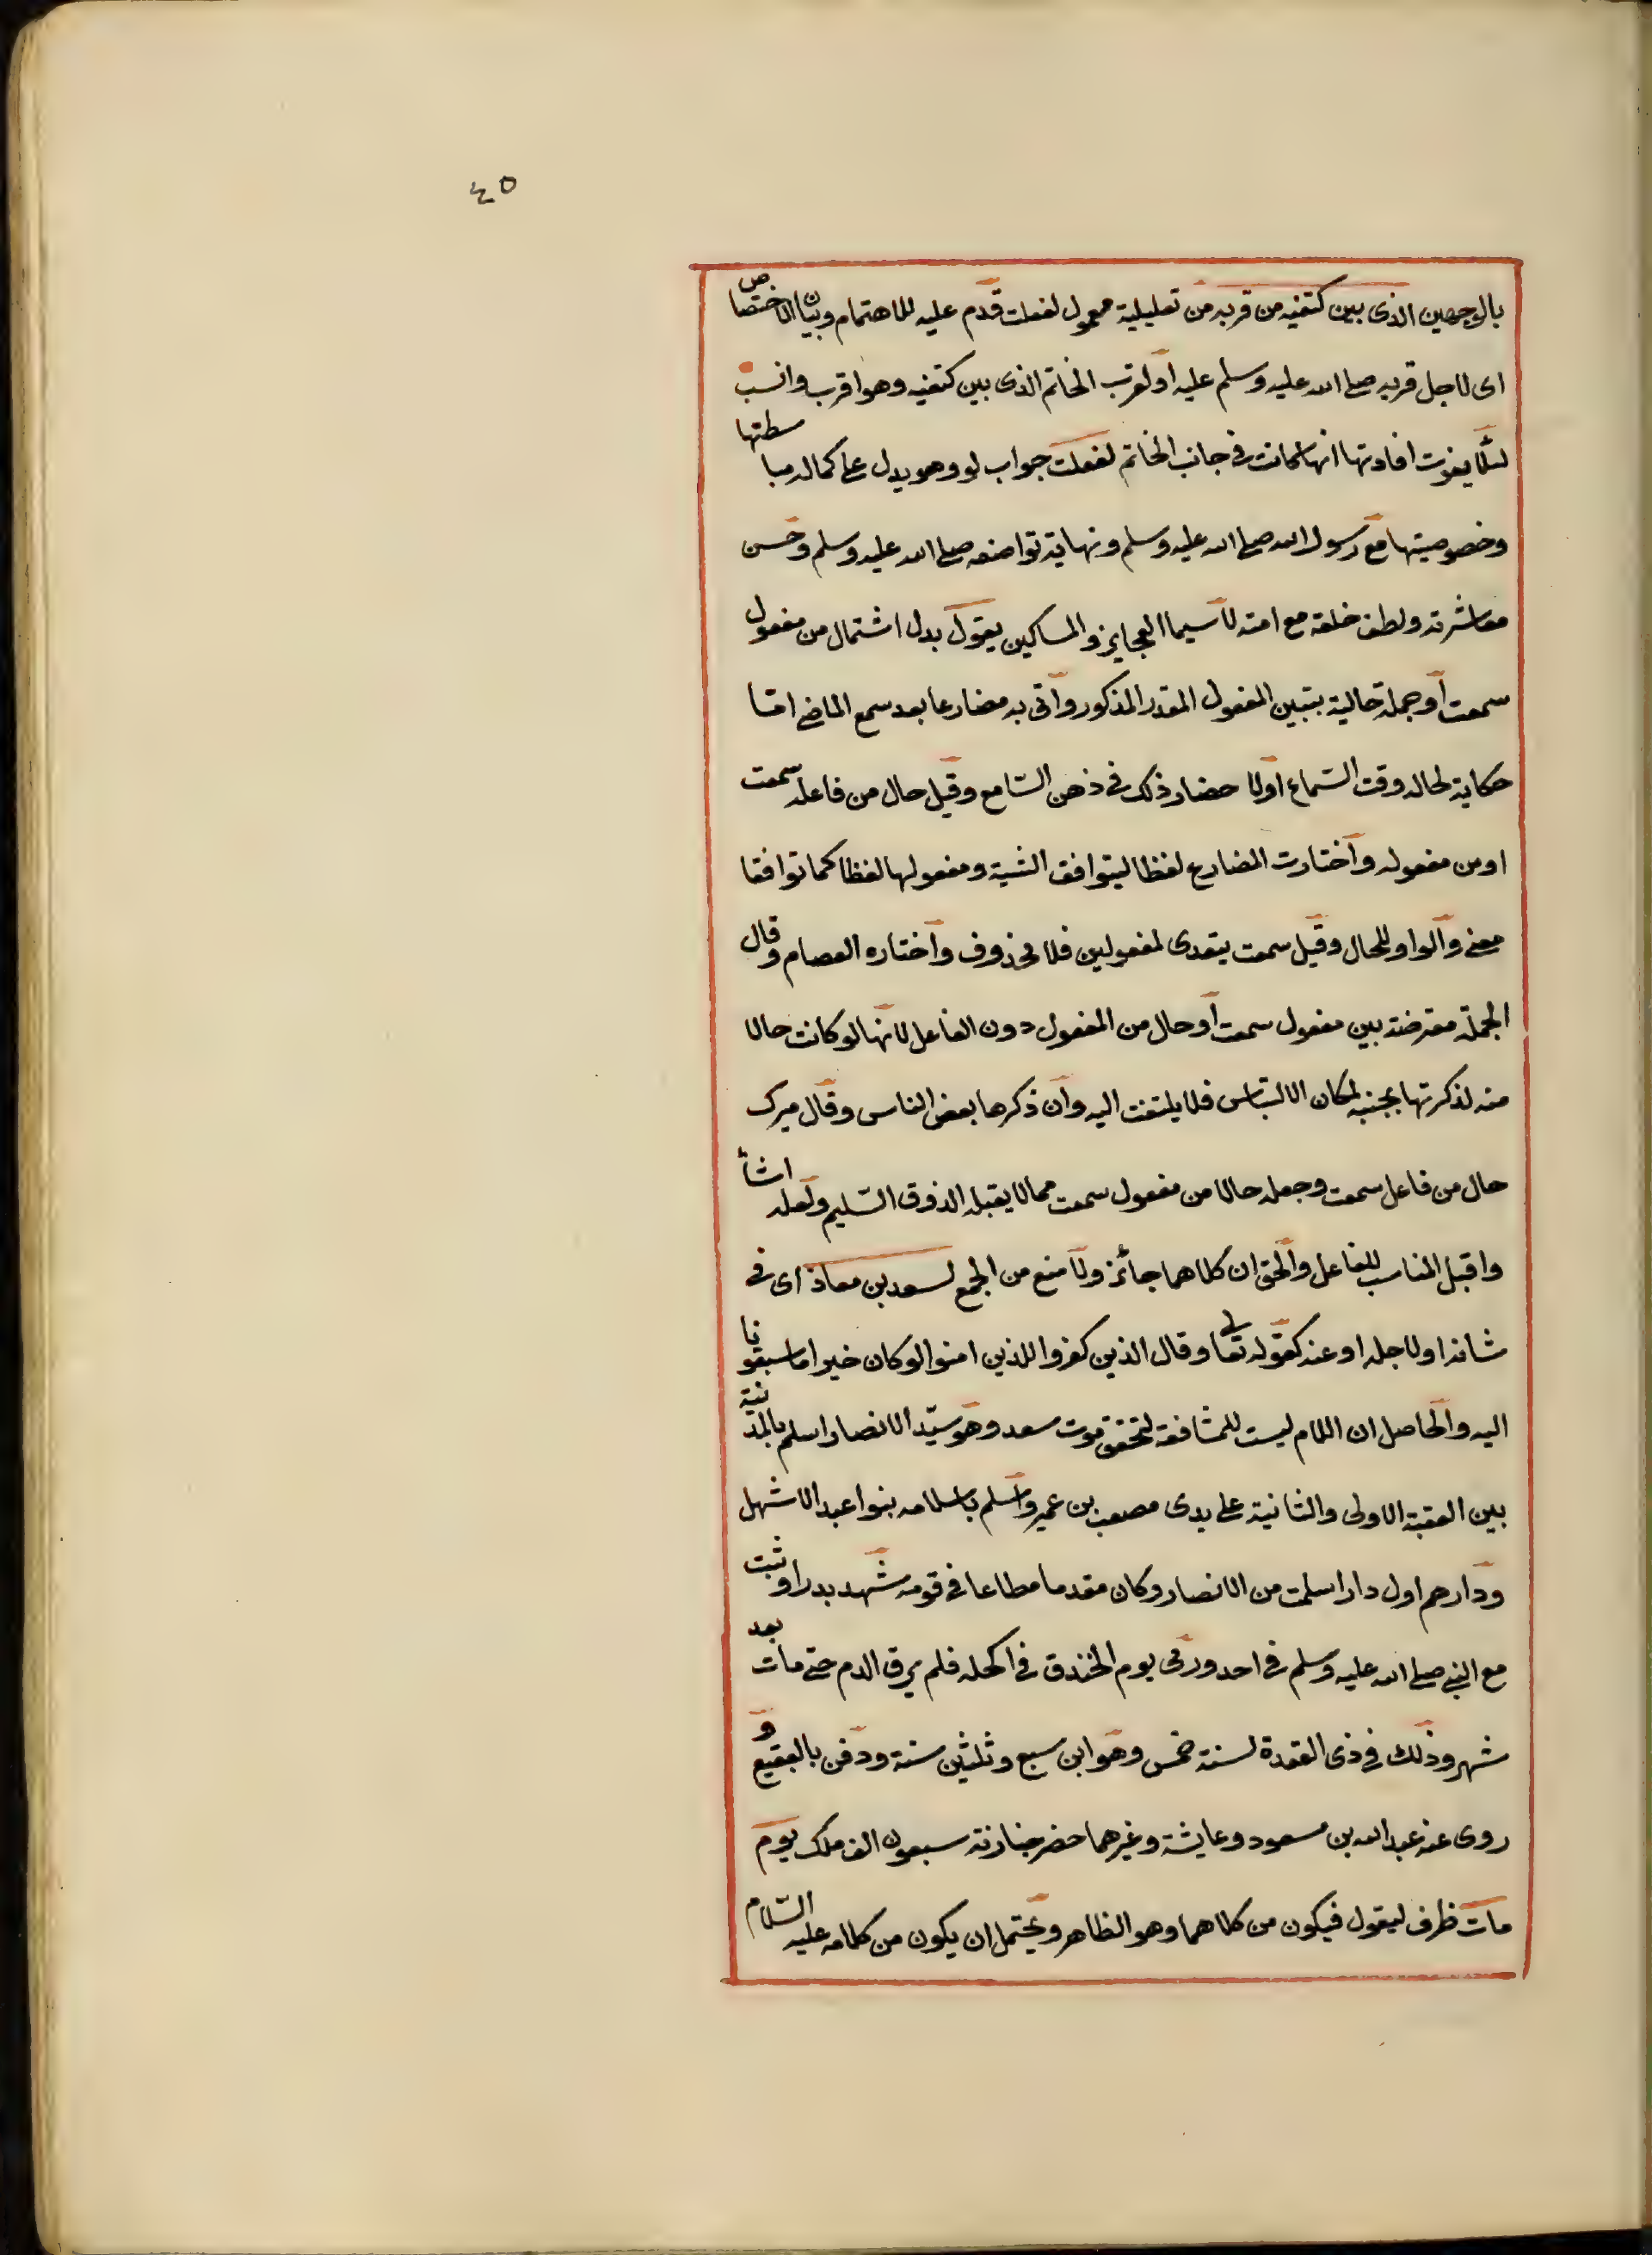 ٤٥
بالوجهين الذى بين كتفيه من قربه من تعليلية معمول لفعلت قدم عليه للاهتمام وبيان الاختصاص
اى لاجل قربه صلى الله عليه وسلم عليه او لقرب الخاتم الذى بين كتفيه وهو اقرب وانسب
لئلا يفوت افادتها انها كانت فى جانب الخاتم لفعلت جواب لو وهو يدل على كمال مباسطتها
وخصوصيتها مع رسول الله صلى الله عليه وسلم ونهاية تواضعه صلى الله عليه وسلم وحسن
معاشرته ولطف خلقه مع امته لا سيما العجايز والمساكين يقول بدل اشتمال من مفعول
سمعت او جملة حالية بتبيين المفعول المقدر المذكور واتى به مضارعا بعد سمع الماضى اما
حكاية لحاله وقت السماع او لاحضار ذلك فى ذهن السامع وقيل حال من فاعله سمعت
او من مفعوله واختارت المضارع لفظا ليتوافق الشية ومفعولها لفظا كما توافقا
معنى والواو للحال وقيل سمعت يتعدى لمفعولين فلا محذوف واختاره العصام وقال
الجملة معترضة بين مفعول سمعت او حال من المفعول دون الفاعل لانها لو كانت حالا
منه لذكرتها بجنبه لمكان الالتباس فلا يلتفت اليه وان ذكرها بعض الناس وقال ميرك
حال من فاعل سمعت وجعله حالا من مفعول سمعت مما لا يقبله الذوق السليم ولعله اشأ
واقبل المناسب للفاعل والحق ان كلاهما جائز ولا منع من الجمع لسعد بن معاذ اى فى
شانه او لاجله او عنه كقوله تعالى وقال الذين كفروا للذين امنوا لو كان خيرا ما سبقونا
اليه والحاصل ان اللام ليست للمشافهة لتحقق موت سعد وهو سيّد الانصار اسلم بالمدنية
بين العقبة الاولى والثانية على يدى مصعب بن عمير واسلم باسلامه بنوا عبد الاشهل
ودارهم اول دار اسلمت من الانصار وكان مقدما مطاعا فى قومه شهد بدرا وثبت
مع النبى صلى الله عليه وسلم فى احد ورمى يوم الخندق فى اكحله فلم يرق الدم حتى مات بعد
شهر وذلك فى ذى القعدة لسنة خمس وهو ابن سبع وثلثين سنة ودفن بالبقيع و
روى عنه عبد الله بن مسعود وعايشة وغيرهما حضر جنازته سبعون الف ملك يوم
مات ظرف ليقول فيكون من كلاهما وهو الظاهر ويحتمل ان يكون من كلامه عليه السّلام